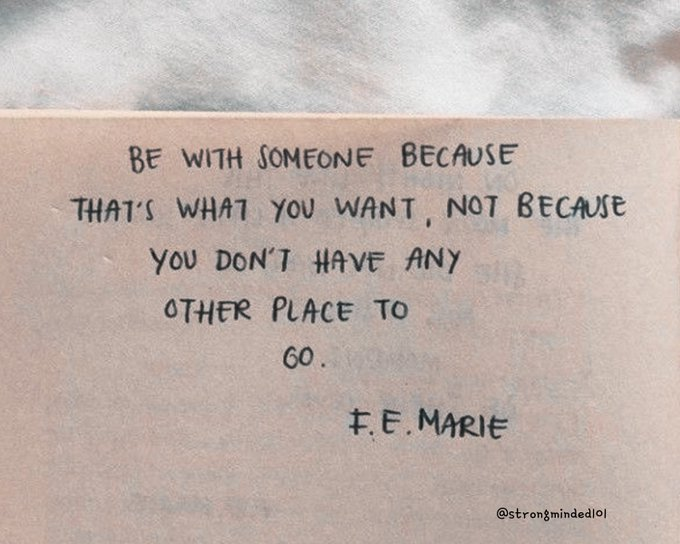 BE WITH SOMEONE BECAUSE
THAT'S WHAT YOU WANT, NOT BECAUSE
YOU DON'T HAVE ANY
OTHER PLACE TO
GO.
F.E. MARIE
@strongminded101